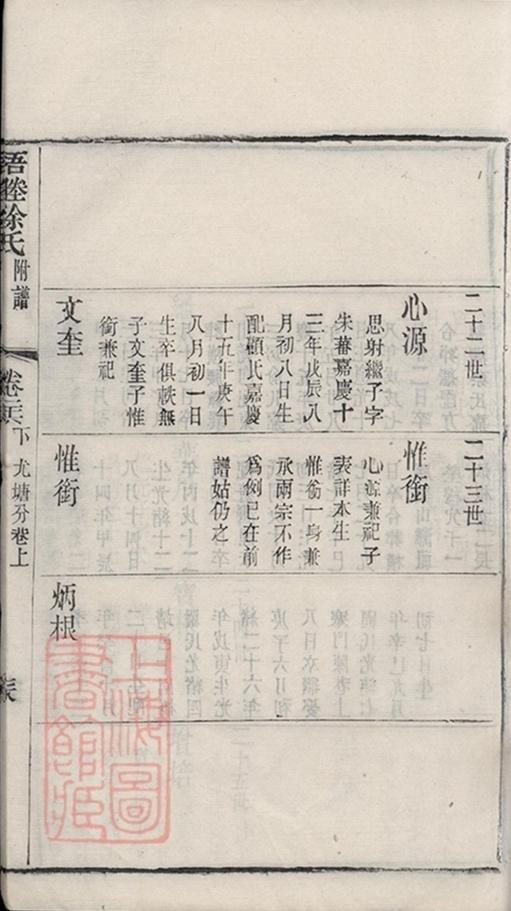 二十二世
心源
思射繼子字
朱蕃嘉慶十
三年戊辰八
月初八日生
配顧氏嘉慶
十五年庚午
八月初一日
生卒俱軼無
子文奎子惟
銜兼祀
文奎
二十三世
惟銜
心源兼祀子
表詳本生
惟銜一身兼
承兩宗不作
爲例已在前
譜姑仍之
惟銜
炳根
梧塍徐氏
附譜
卷
下
尤塘分巷上
上海圖
書館臧